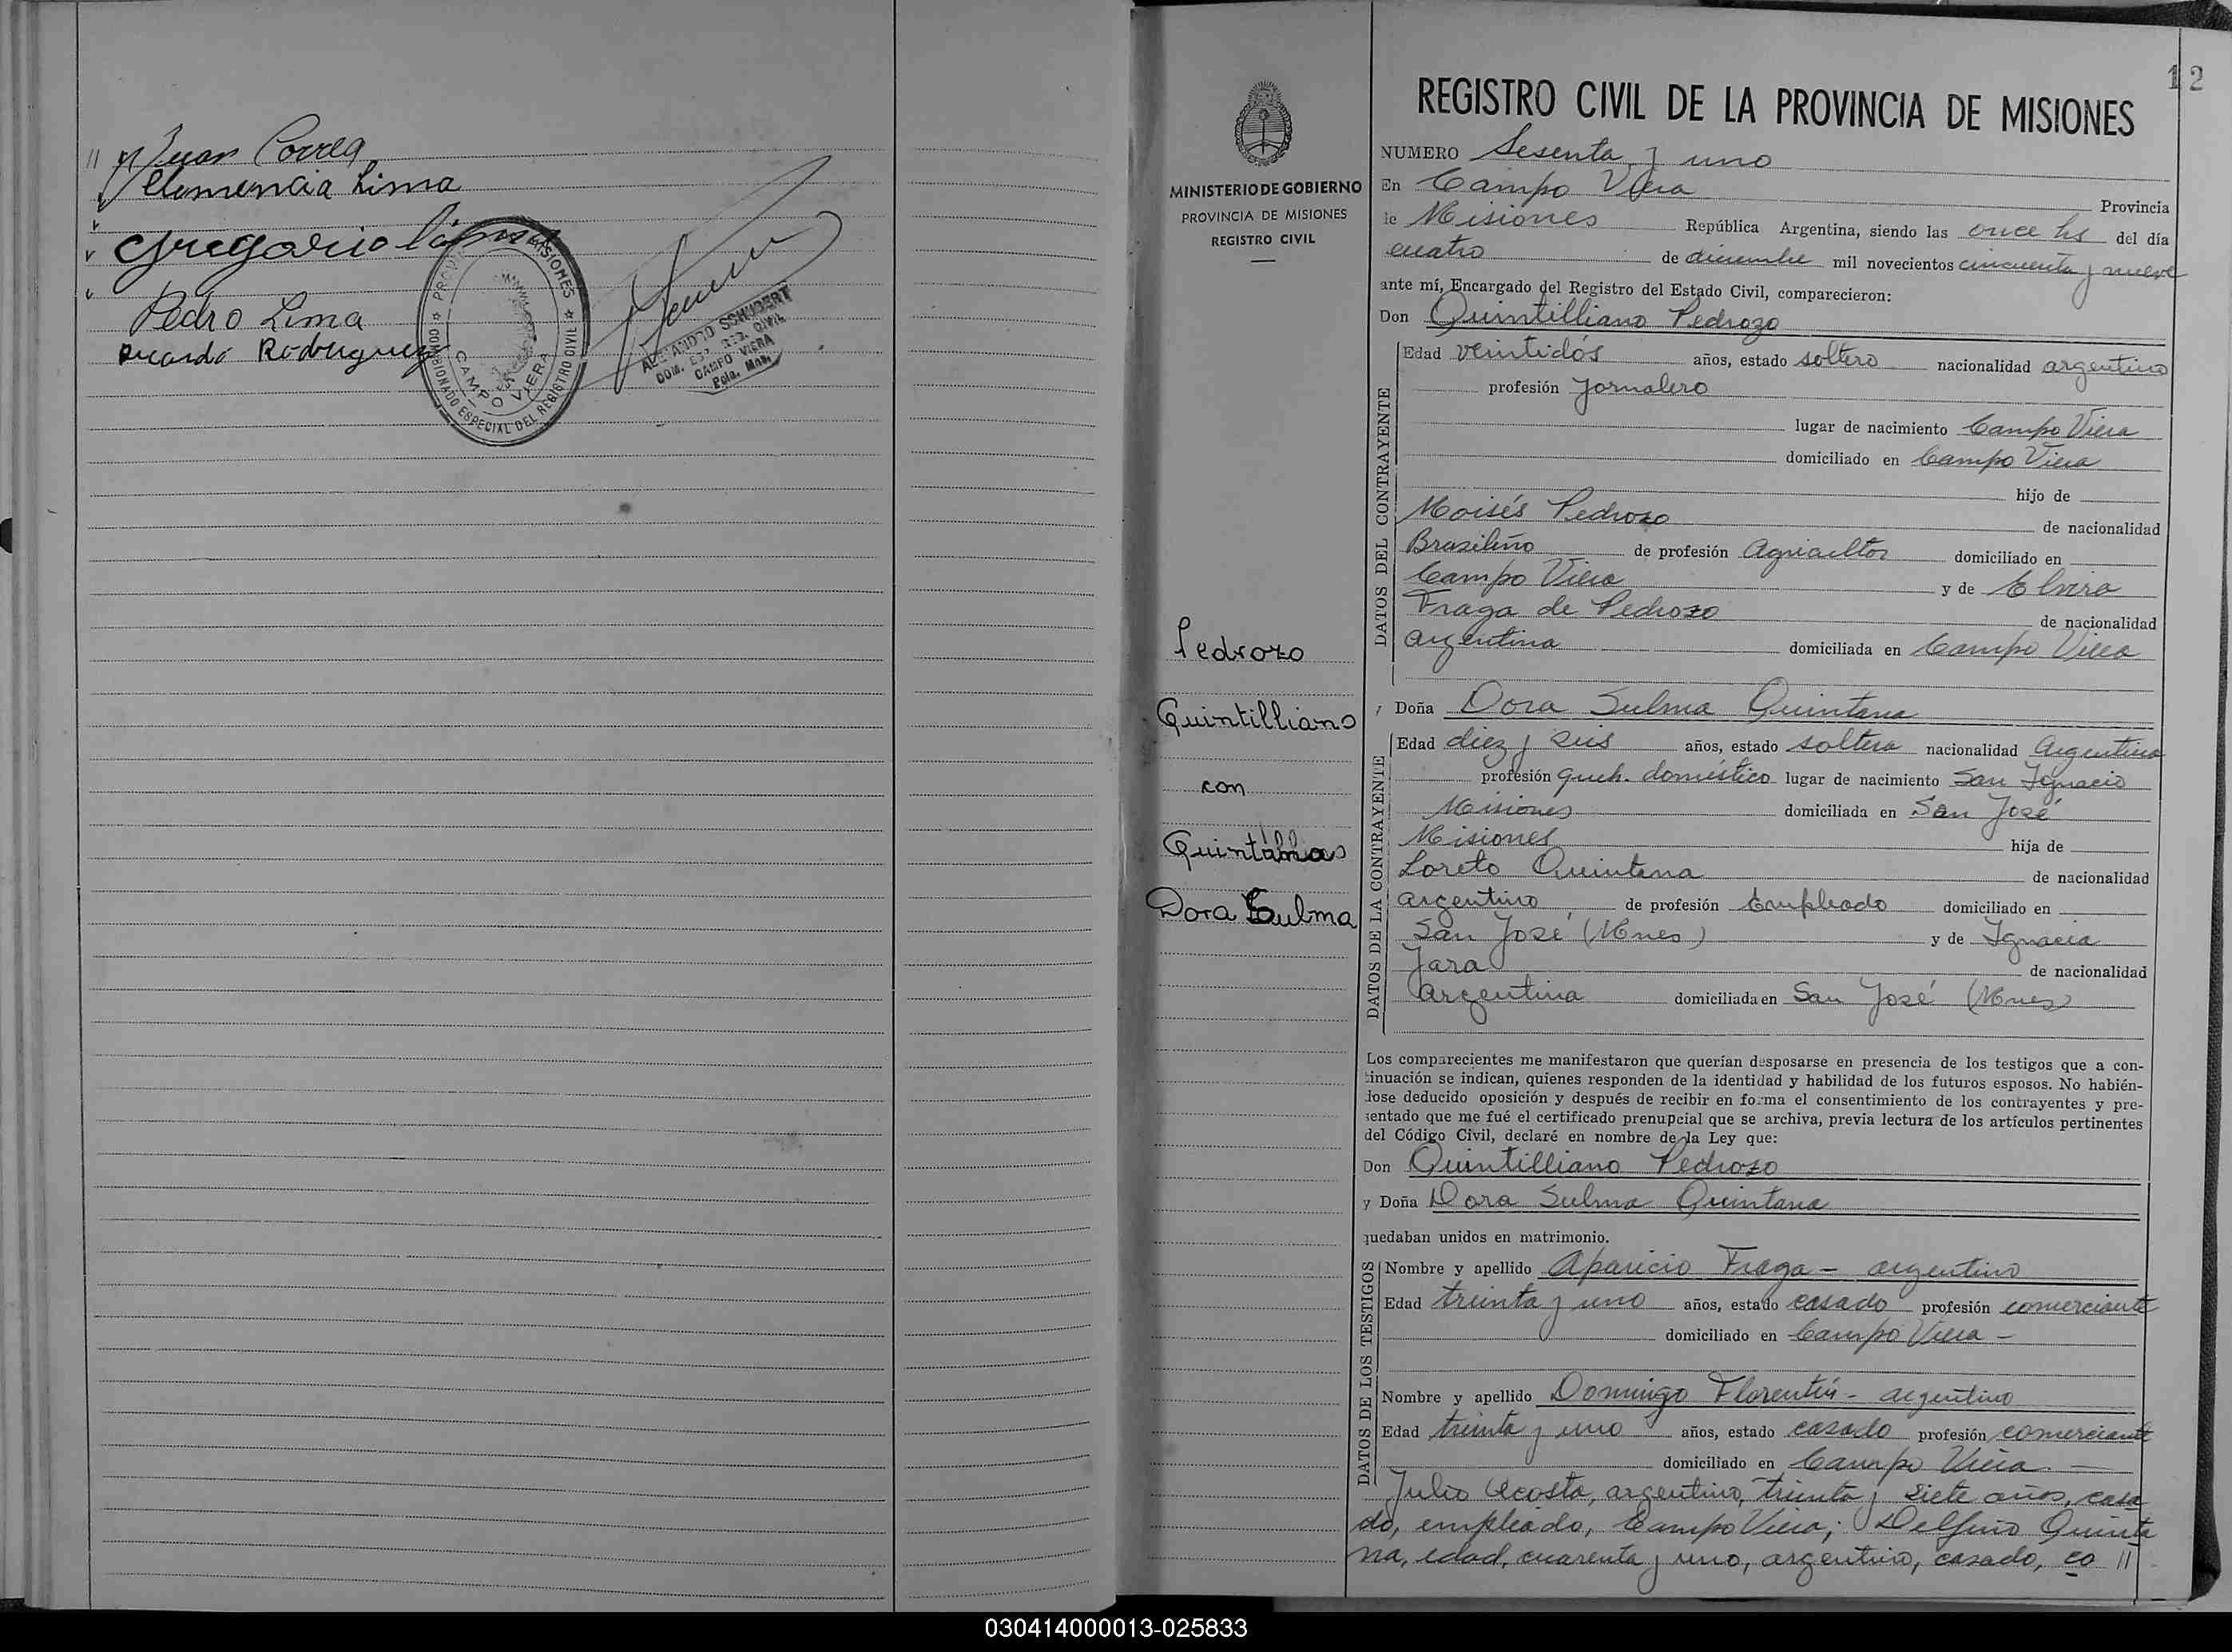 // Juan Correa
Clemencia Lima
Gregorio
Pedro Lima
Ricardo Rodriguez
PROVINCIA MISIONES
COMISIONADO ESPECIAL DEL REGISTRO CIVIL
CAMPO VIERA
ALEJANDRO SCHUBERT
COM. ESP. REG. CIVIL
CAMPO VIERA
Pcia. Mnes.
12
MINISTERIO DE GOBIERNO
PROVINCIA DE MISIONES
REGISTRO CIVIL
Pedrozo
Quintilliano
con
Quintana
Dora Sulma
REGISTRO CIVIL DE LA PROVINCIA DE MISIONES
NUMERO Sesenta y uno
En Campo Viera Provincia
de Misiones República Argentina, siendo las once hs del día
cuatro de diciembre mil novecientos cincuenta y nueve
ante mí, Encargado del Registro del Estado Civil, comparecieron:
Don Quintilliano Pedrozo
DATOS DEL CONTRAYENTE
Edad veintidós años, estado soltero nacionalidad argentino
profesión Jornalero
lugar de nacimiento Campo Viera
domiciliado en Campo Viera
hijo de
Moisés Pedrozo de nacionalidad
Brasileño de profesión Agricultor domiciliado en
Campo Viera y de Elvira
Fraga de Pedrozo de nacionalidad
argentina domiciliada en Campo Viera
y Doña Dora Sulma Quintana
DATOS DE LA CONTRAYENTE
Edad diez y seis años, estado soltera nacionalidad Argentina
profesión queh. doméstico lugar de nacimiento San Ignacio
Misiones domiciliada en San José
Misiones hija de
Loreto Quintana de nacionalidad
argentino de profesión Empleado domiciliado en
San José (Mnes) y de Ignacia
Jara de nacionalidad
argentina domiciliada en San José (Mnes)
Los comparecientes me manifestaron que querían desposarse en presencia de los testigos que a con-
tinuación se indican, quienes responden de la identidad y habilidad de los futuros esposos. No habién-
dose deducido oposición y después de recibir en forma el consentimiento de los contrayentes y pre-
sentado que me fué el certificado prenupcial que se archiva, previa lectura de los artículos pertinentes
del Código Civil, declaré en nombre de la Ley que:
Don Quintilliano Pedrozo
y Doña Dora Sulma Quintana
quedaban unidos en matrimonio.
DATOS DE LOS TESTIGOS
Nombre y apellido Aparicio Fraga - argentino
Edad treinta y uno años, estado casado profesión comerciante
domiciliado en Campo Viera -
Nombre y apellido Domingo Florentín - argentino
Edad treinta y uno años, estado casado profesión comerciante
domiciliado en Campo Viera. -
Julio Acosta, argentino, treinta y siete años, casa
do, empleado, Campo Viera; Delfino Quinta
na, edad, cuarenta y uno, argentino, casado, co //
030414000013-025833